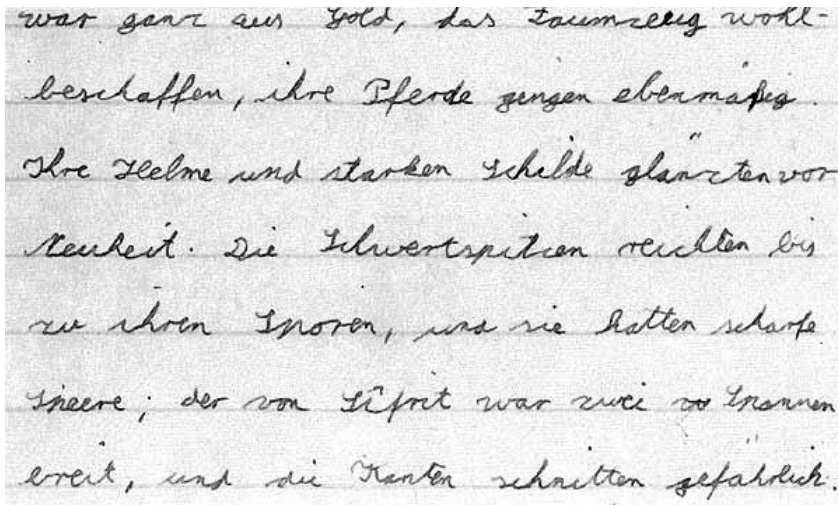 war ganz aus Gold, das Zaumzeug wohl-
beschaffen, ihre Pferde gingen ebenmäßig.
Ihre Helme und starken Schilde glänzten vor
Neuheit. Die Schwertspitzen reichten bis
zu ihren Sporen, und sie hatten scharfe
Speere; der von Sîfrit war zwei Spannen
breit, und die Kanten schnitten gefährlich.